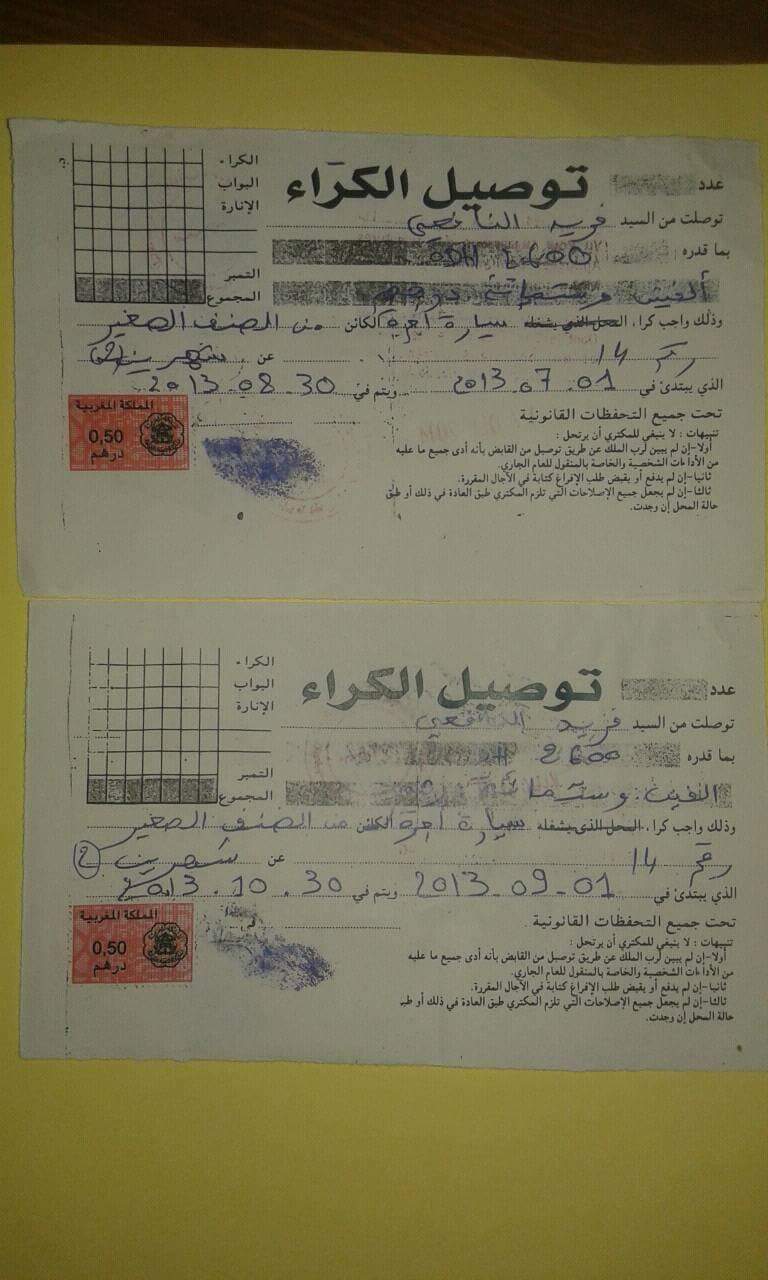 عدد
توصيل الكراء
الكراء
البواب
الإنارة
التمبر
المجموع
توصلت من السيد فريد
بما قدره 2600 DH
ألفين وستمائة درهم
وذلك واجب كراء، المحل الذي يشغله سيارة أجرة الكائن من الصنف الصغير
رقم 14 عن شهرين (2)
الذي يبتدئ في 01-07-2013 ويتم في 30-08-2013
تحت جميع التحفظات القانونية
تنبيهات : لا ينبغي للمكتري أن يرتحل :
أولا-إن لم يبين لرب الملك عن طريق توصيل من القابض بأنه أدى جميع ما عليه
من الأداءات الشخصية والخاصة بالمنقول للعام الجاري.
ثانيا-إن لم يدفع أو يقبض طلب الإفراغ كتابة في الآجال المقررة.
ثالثا-إن لم يجعل جميع الإصلاحات التي تلزم المكتري طبق العادة في ذلك أو طبق
حالة المحل إن وجدت.
المملكة المغربية
0,50
درهم
عدد
توصيل الكراء
الكراء
البواب
الإنارة
التمبر
المجموع
توصلت من السيد فريد
بما قدره 2600
ألفين وستمائة
وذلك واجب كراء، المحل الذي يشغله سيارة أجرة الكائن من الصنف الصغير
رقم 14 عن شهرين (2)
الذي يبتدئ في 01-09-2013 ويتم في 30.10.2013
تحت جميع التحفظات القانونية
تنبيهات : لا ينبغي للمكتري أن يرتحل :
أولا-إن لم يبين لرب الملك عن طريق توصيل من القابض بأنه أدى جميع ما عليه
من الأداءات الشخصية والخاصة بالمنقول للعام الجاري.
ثانيا-إن لم يدفع أو يقبض طلب الإفراغ كتابة في الآجال المقررة.
ثالثا-إن لم يجعل جميع الإصلاحات التي تلزم المكتري طبق العادة في ذلك أو طبـ
حالة المحل إن وجدت.
المملكة المغربية
0,50
درهم